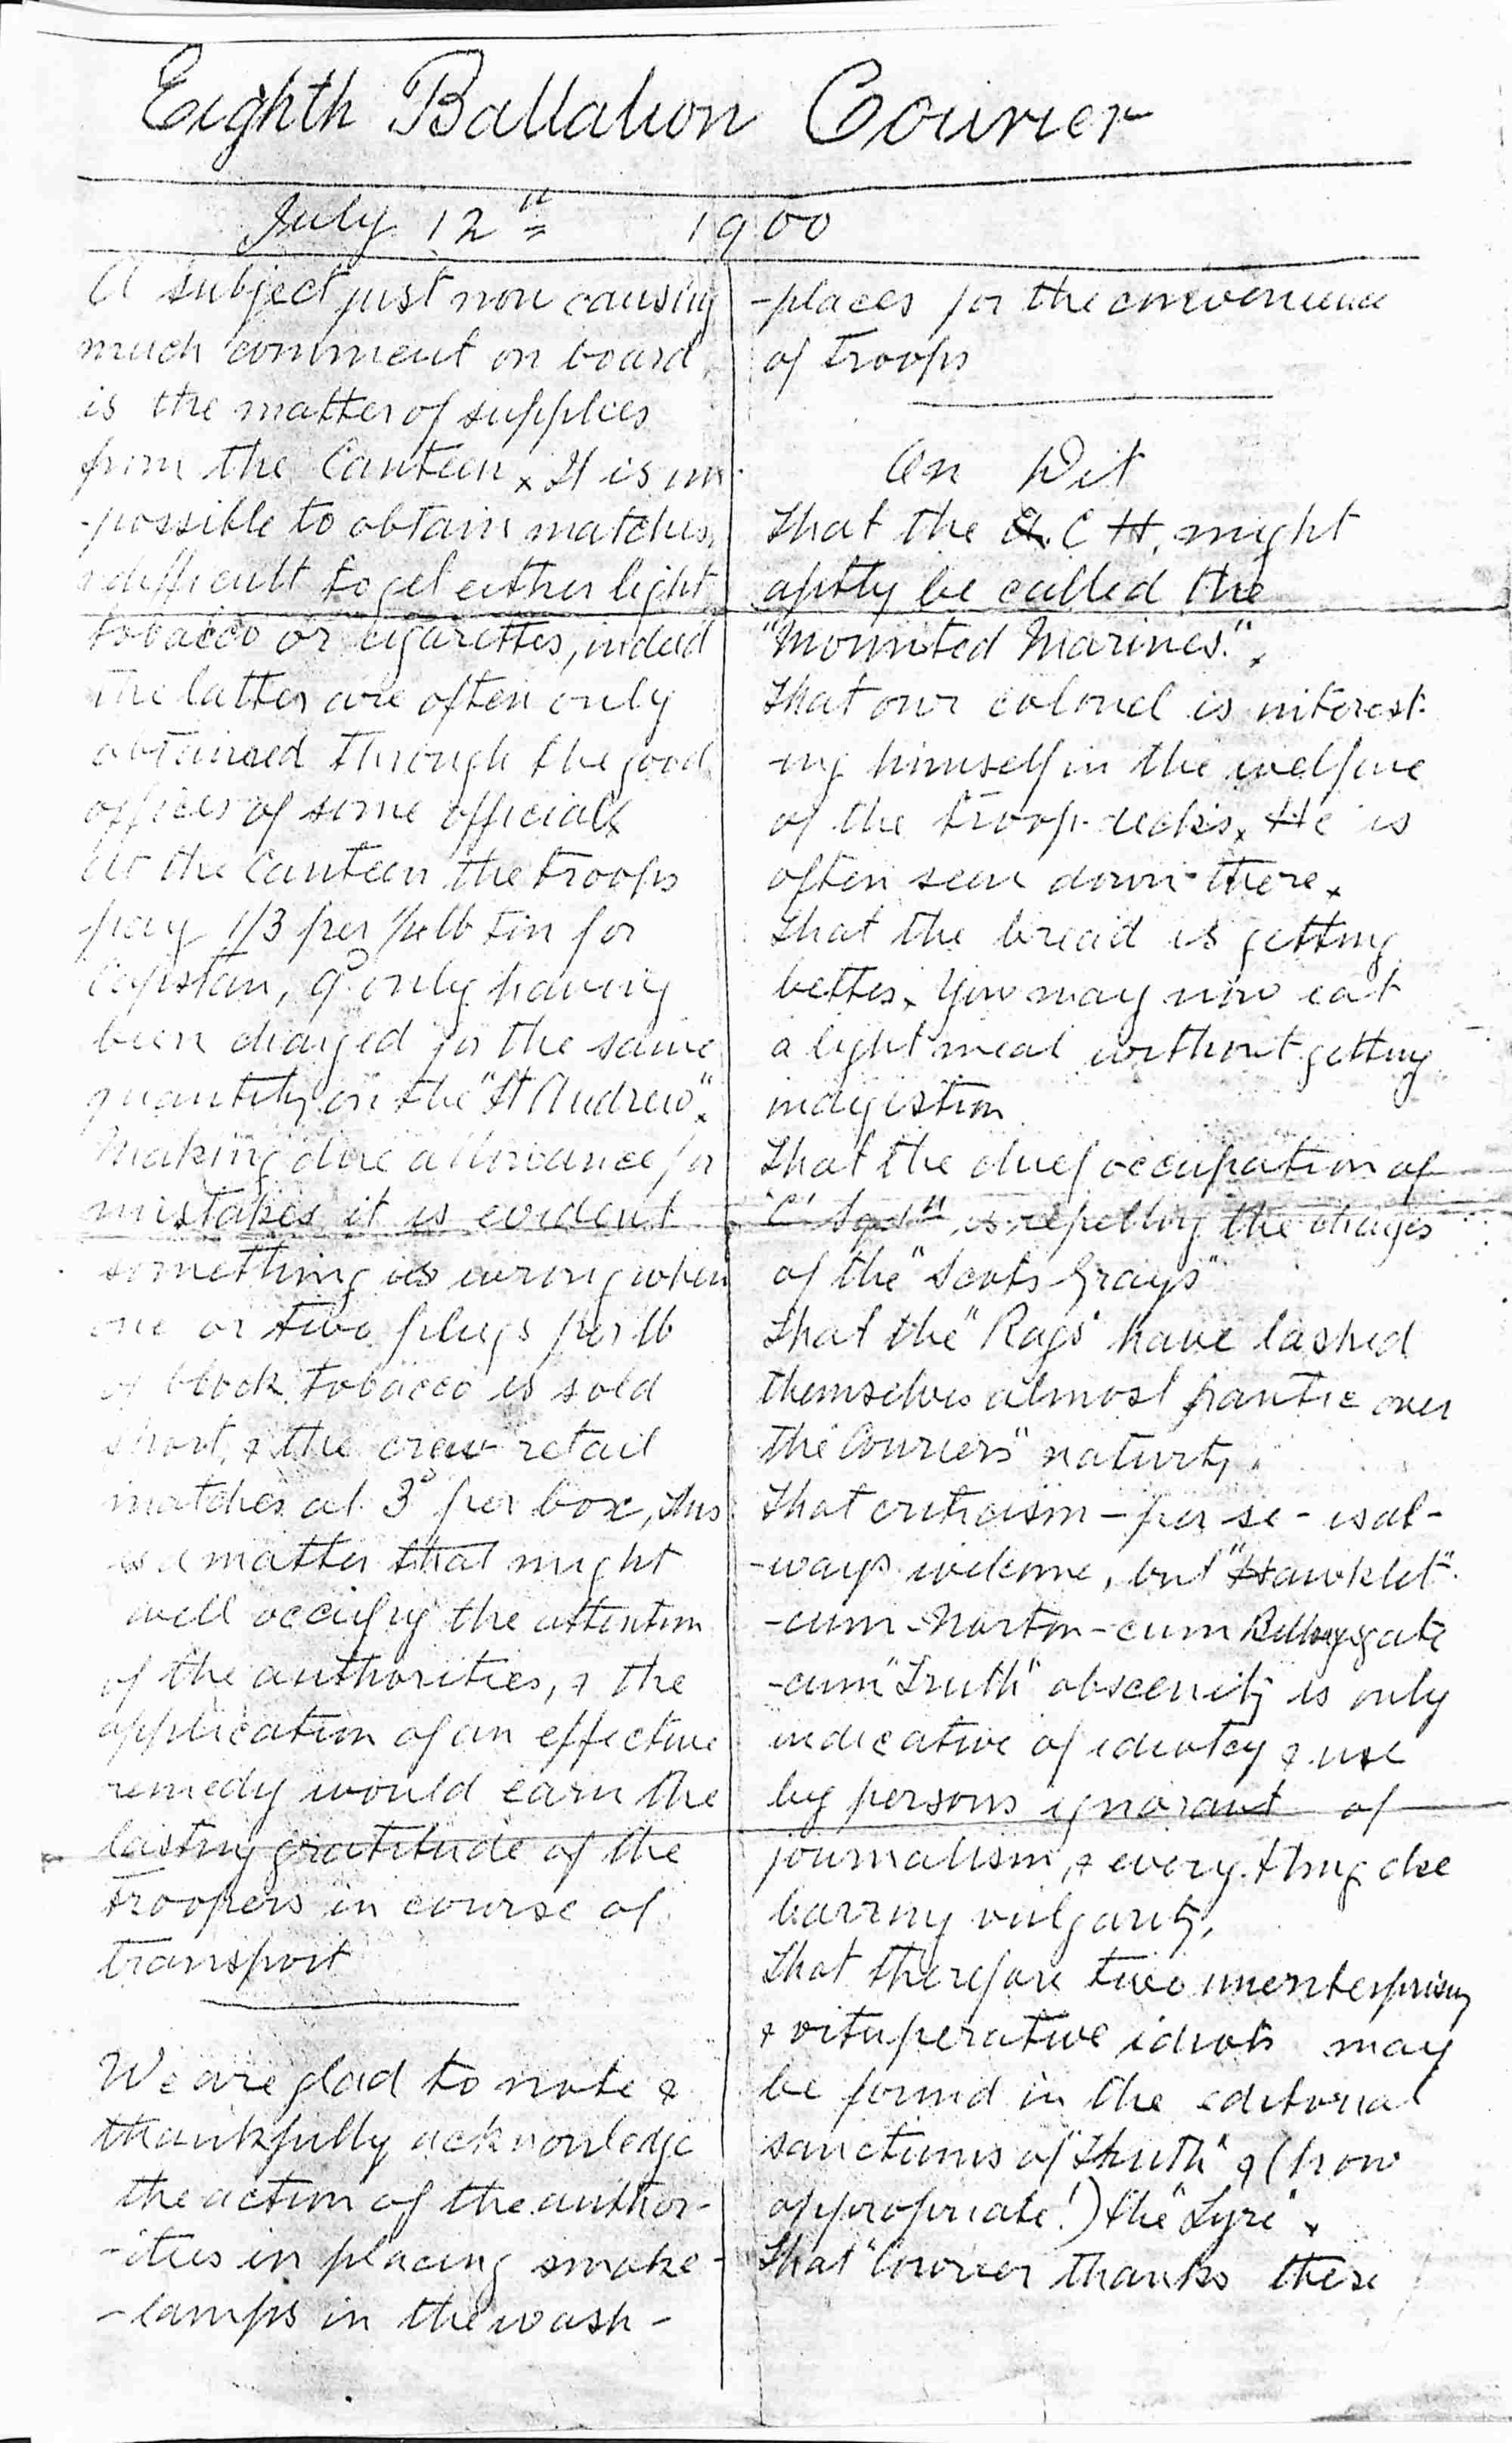 Eighth Battalion Courier
July 12th 1900
A subject just now causing
much comment on board
is the matter of supplies
from the Canteen x It is im
-possible to obtain matches,
difficult to get either light
tobacco or cigarettes, indeed
the latter are often only
obtained through the good
offices of some official x
At the Canteen the troops
pay 1/3 per ¼ lb tin for
Capstan, 9d only having
been charged for the same
quantity on the "St Andrew" x
Making due allowance for
mistakes it is evident
something is wrong when
one or two plugs per lb
of block tobacco is sold
short, & the crew retail
matches at 3d per box, this
is a matter that might
well occupy the attention
of the authorities, & the
application of an effective
remedy would earn the
lasting gratitude of the
troopers in course of
transport
We are glad to note &
thankfully acknowledge
the action of the author-
-ities in placing smoke-
-lamps in the wash-
-places for the convenience
of troops
On Dit
That the A.C H. might
aptly be called the
"Mounted Marines." x
That our colonel is interest-
ing himself in the welfare
of the troop-decks x He is
often seen down there x
That the bread is getting
better x You may now eat
a light meal without getting
indigestion
That the chief occupation of
"C" Sqdn is repelling the charges
of the "Scots Grays"
That the "Rags" have lashed
themselves almost frantic over
the "Couriers"
That criticism - per se - is al-
-ways welcome, but "Hawklet"
-cum-Norton-cum Billingsgate
-cum "Truth" obscenity is only
indicative of idiotcy & use
by persons ignorant of
journalism, & every thing else
barring vulgarity,
That therefore two unenterprising
& vituperative idiots may
be found in the editorial
sanctums of "Thuth" & (how
appropriate!) the "Lyre" x
That "Courier thanks these